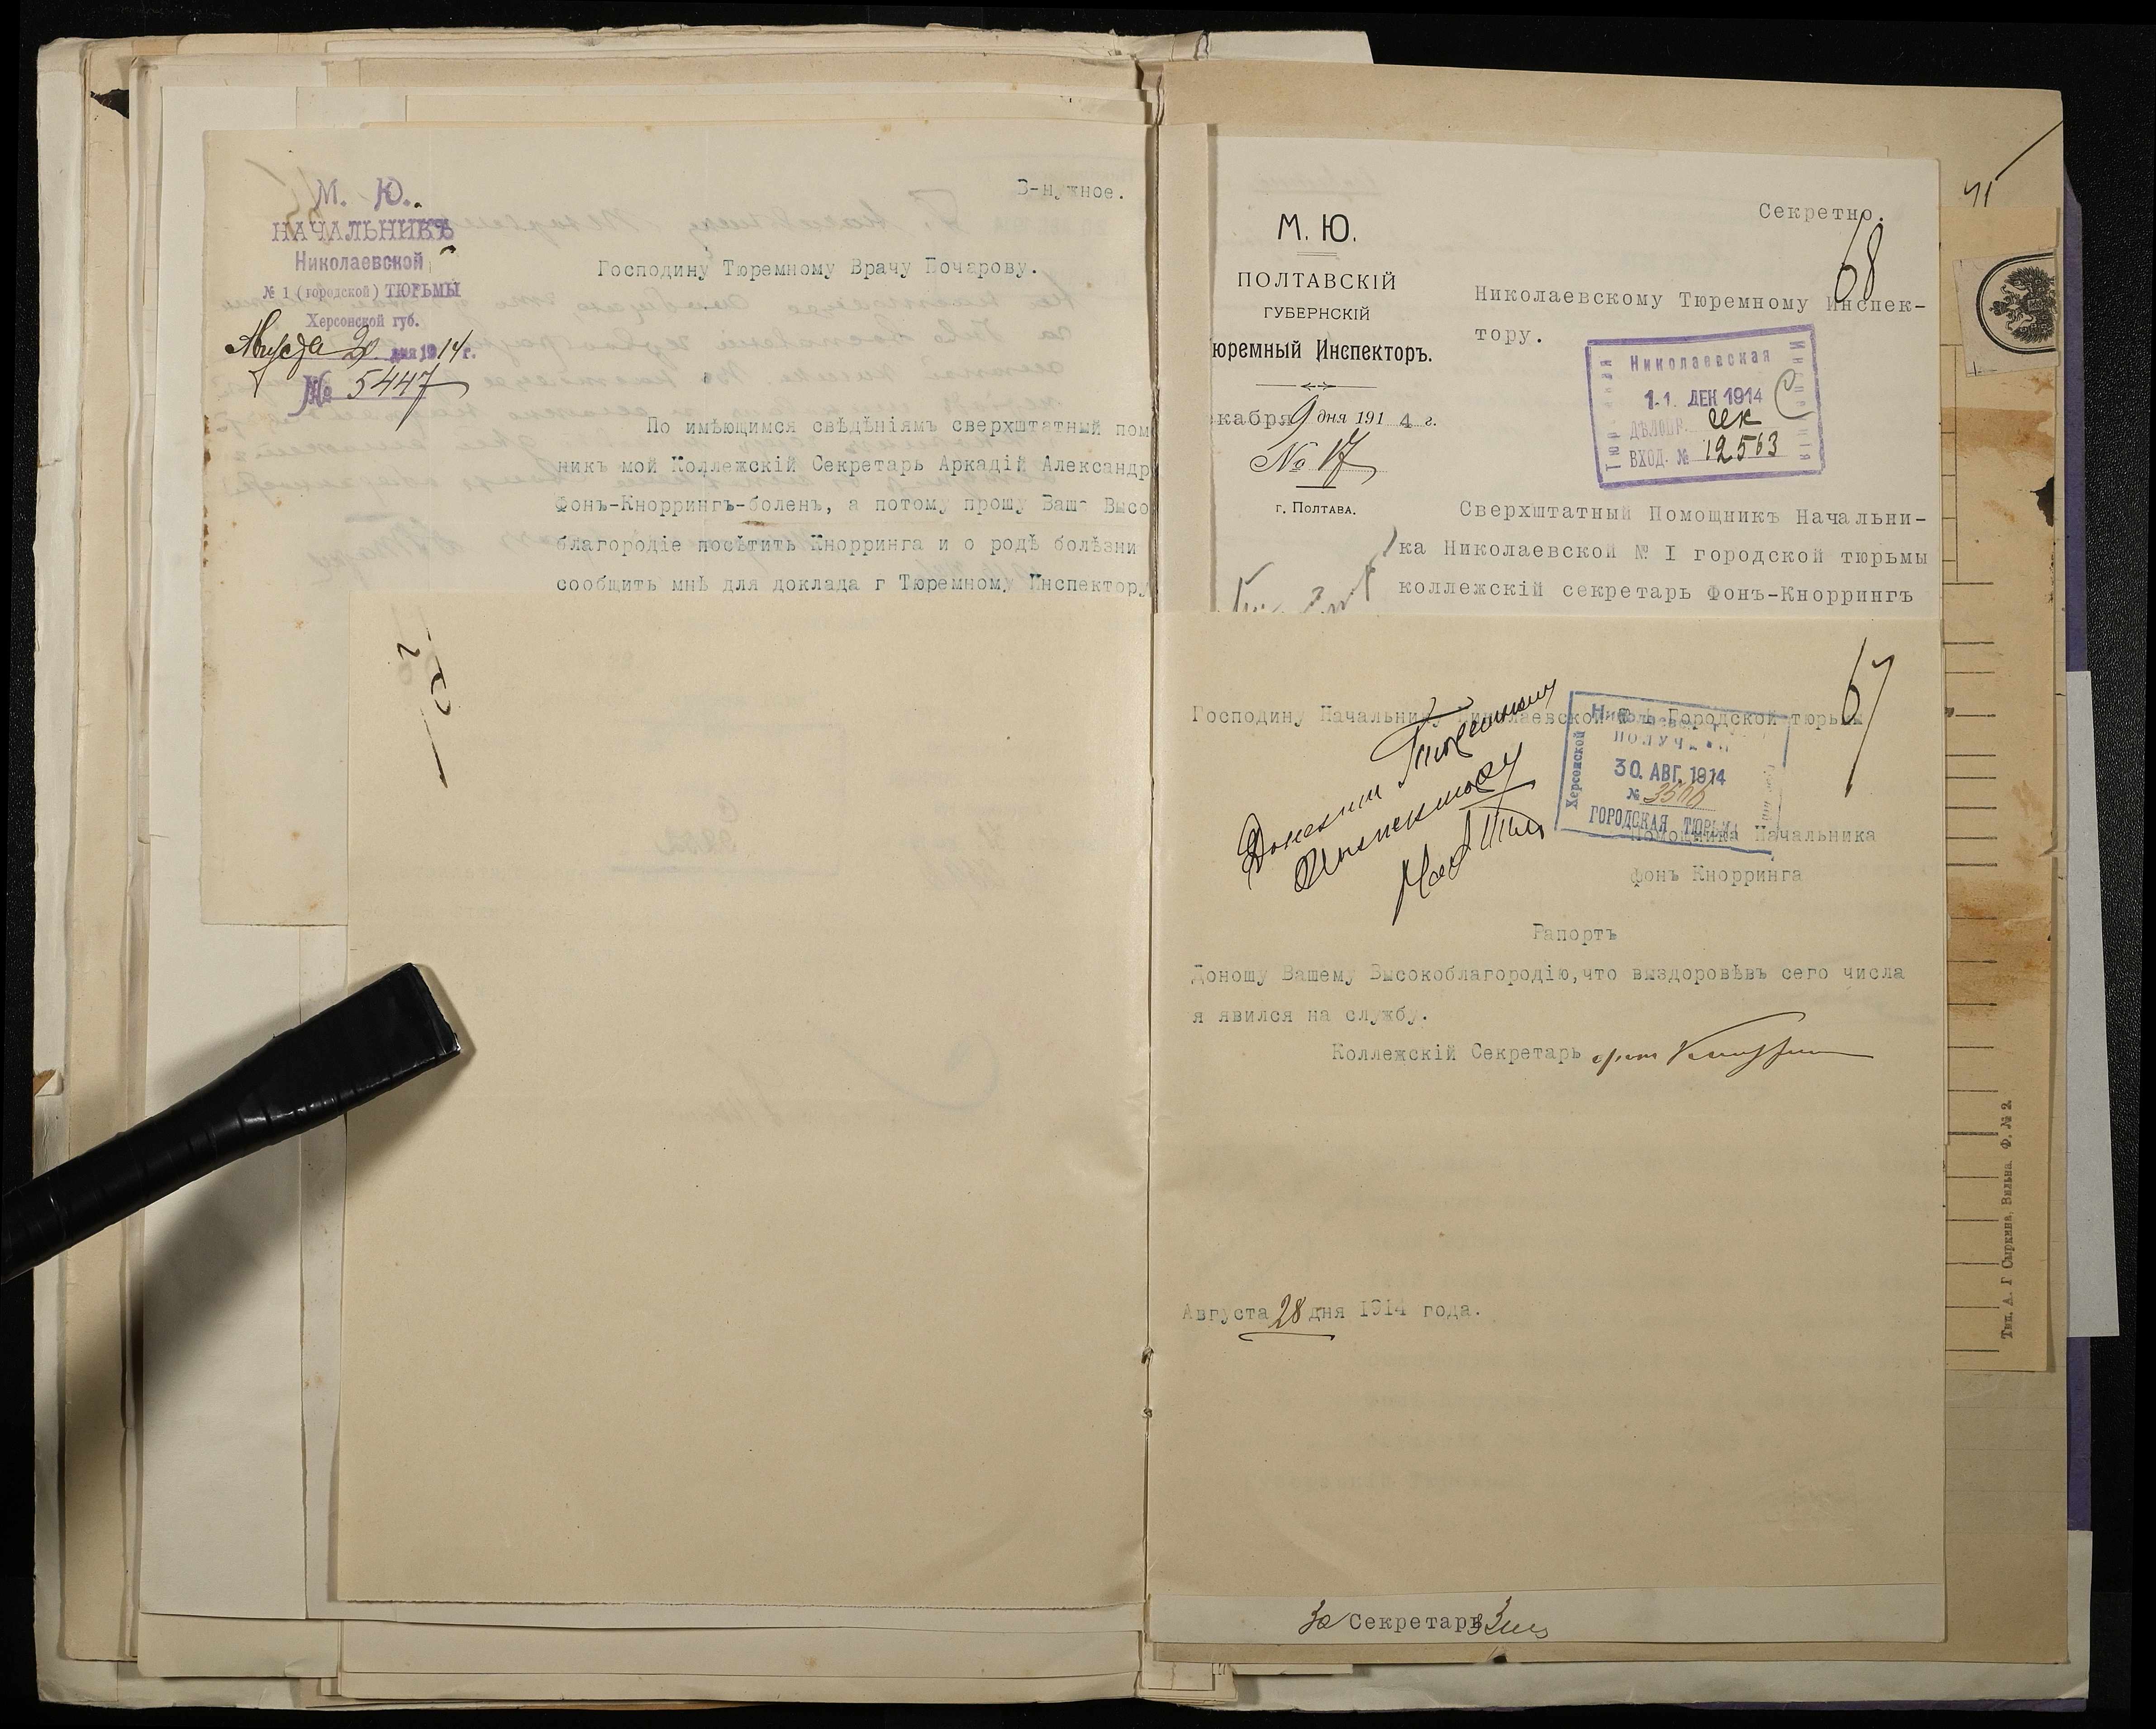 М. Ю.
НАЧАЛЬНИКЪ
Николаевской
№ 1 (городской) ТЮРЬМЫ
Херсонской губ.
Августа 20 дня 1914 г.
№ 5447
В-нужное.
Господину Тюремному Врачу Бочарову.
По имѣющимся свѣдѣніямъ сверхштатный пом
никъ мой Коллежскій Секретарь Аркадій Александр
Фонъ-Кноррингъ-боленъ, а потому прошу Ваше Высо
благородіе посѣтить Кнорринга и о родѣ болѣзни
сообщить мнѣ для доклада г Тюремному Инспектору
М. Ю.
ПОЛТАВСКІЙ
ГУБЕРНСКІЙ
юремный Инспекторъ.
екабря 9 дня 1914 г.
№ 17
г. Полтава.
Секретно.
68
Николаевскому Тюремному Инспек-
тору.
Николаевская
Тюремная
Инспекція
11. ДЕК 1914
ДѢЛОПР.
ВХОД. № 12563
Сверхштатный Помощникъ Начальни-
ка Николаевской № I городской тюрьмы
коллежскій секретарь Фонъ-Кноррингъ
67
Господину Начальнику Николаевской № 1 Городской тюрьмы
Донесть Тюремному
Инспектору
Херсонской
ПОЛУЧЕН
30. АВГ. 1914
№ 3566
ГОРОДСКАЯ ТЮРЬМА
Помощника Начальника
фонъ Кнорринга
Рапортъ
Доношу Вашему Высокоблагородію,что выздоровѣвъ сего числа
я явился на службу.
Коллежскій Секретарь фонъ Кноррингъ
Августа 28 дня 1914 года.
За Секретаря
41
Тип. А. Г Сыркина, Вильна. Ф. № 2.